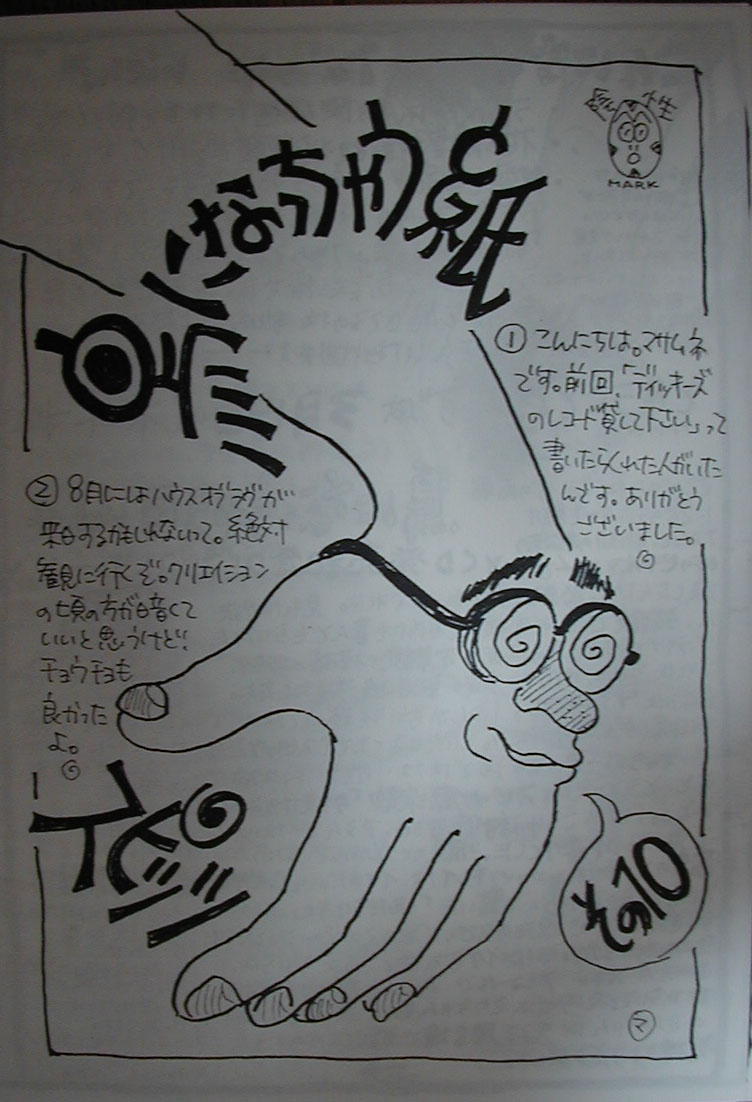 MARK
になっちゃう紙
① こんにちは。マサムネ
です。前回、「ディッキーズ
のレコード貸して下さい」って
書いたらくれた人がいた
んです。ありがとう
ございました。
② 8月にはハウスオブラヴが
来日するかもしれないって。絶対
観に行くぞ。クリエイション
の頃の方が暗くて
いいと思うけど!
チョウチョも
良かった
よ。
スピッツ
その10
マ